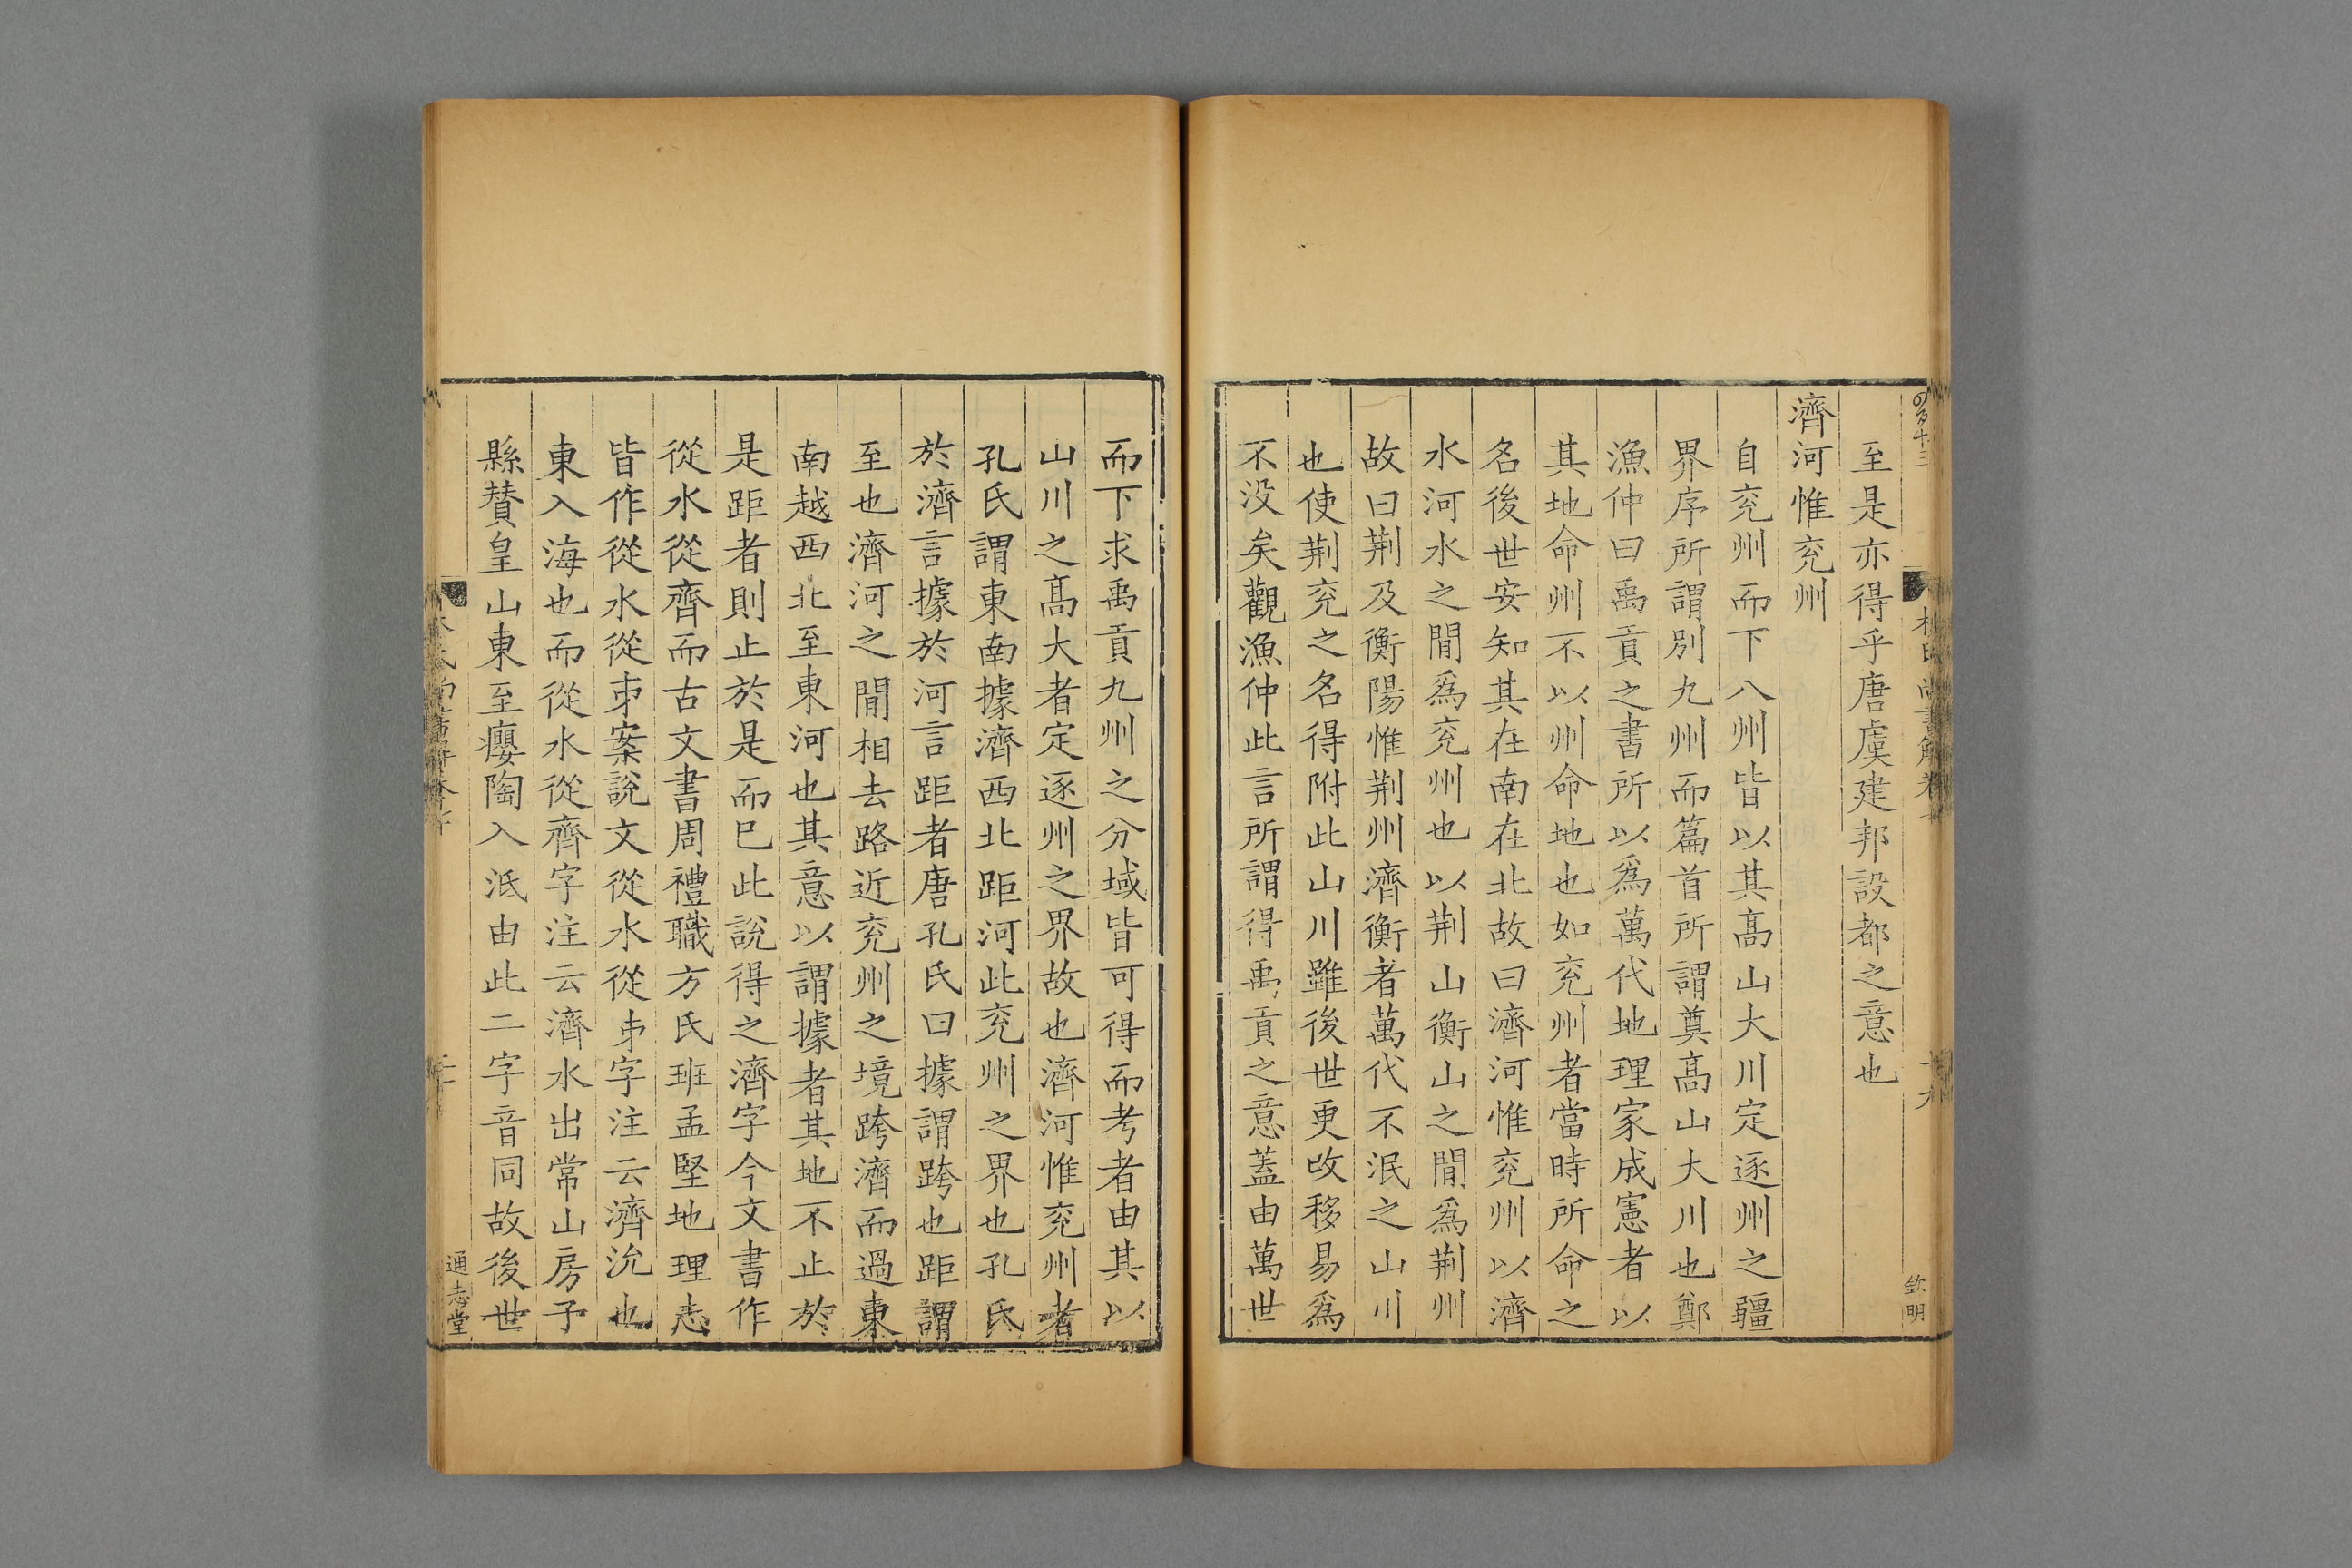 至是亦得乎唐虞建邦設都之意也
濟河惟兖州
自兖州而下八州皆以其髙山大川定逐州之疆
界序所謂別九州而篇首所謂奠髙山大川也鄭
漁仲曰禹貢之書所以爲萬代地理家成憲者以
其地命州不以州命地也如兖州者當時所命之
名後世安知其在南在北故曰濟河惟兖州以濟
水河水之間爲兖州也以荆山衡山之間爲荆州
故曰荆及衡陽惟荆州濟衡者萬代不泯之山川
也使荆兖之名得附此山川雖後世更改移易爲
不没矣觀漁仲此言所謂得禹貢之意蓋由萬世
十九
欽明
而下求禹貢九州之分域皆可得而考者由其以
山川之髙大者定逐州之界故也濟河惟兖州者
孔氏謂東南據濟西北距河此兖州之界也孔氏
於濟言據於河言距者唐孔氏曰據謂跨也距謂
至也濟河之間相去路近兖州之境跨濟而過東
南越西北至東河也其意以謂據者其地不止於
是距者則止於是而已此說得之濟字今文書作
從水從齊而古文書周禮職方氏班孟堅地理志
皆作從水從𠂔案說文從水從𠂔字注云濟沇也
東入海也而從水從齊字注云濟水出常山房子
縣賛皇山東至癭陶入泜由此二字音同故後世
通志堂